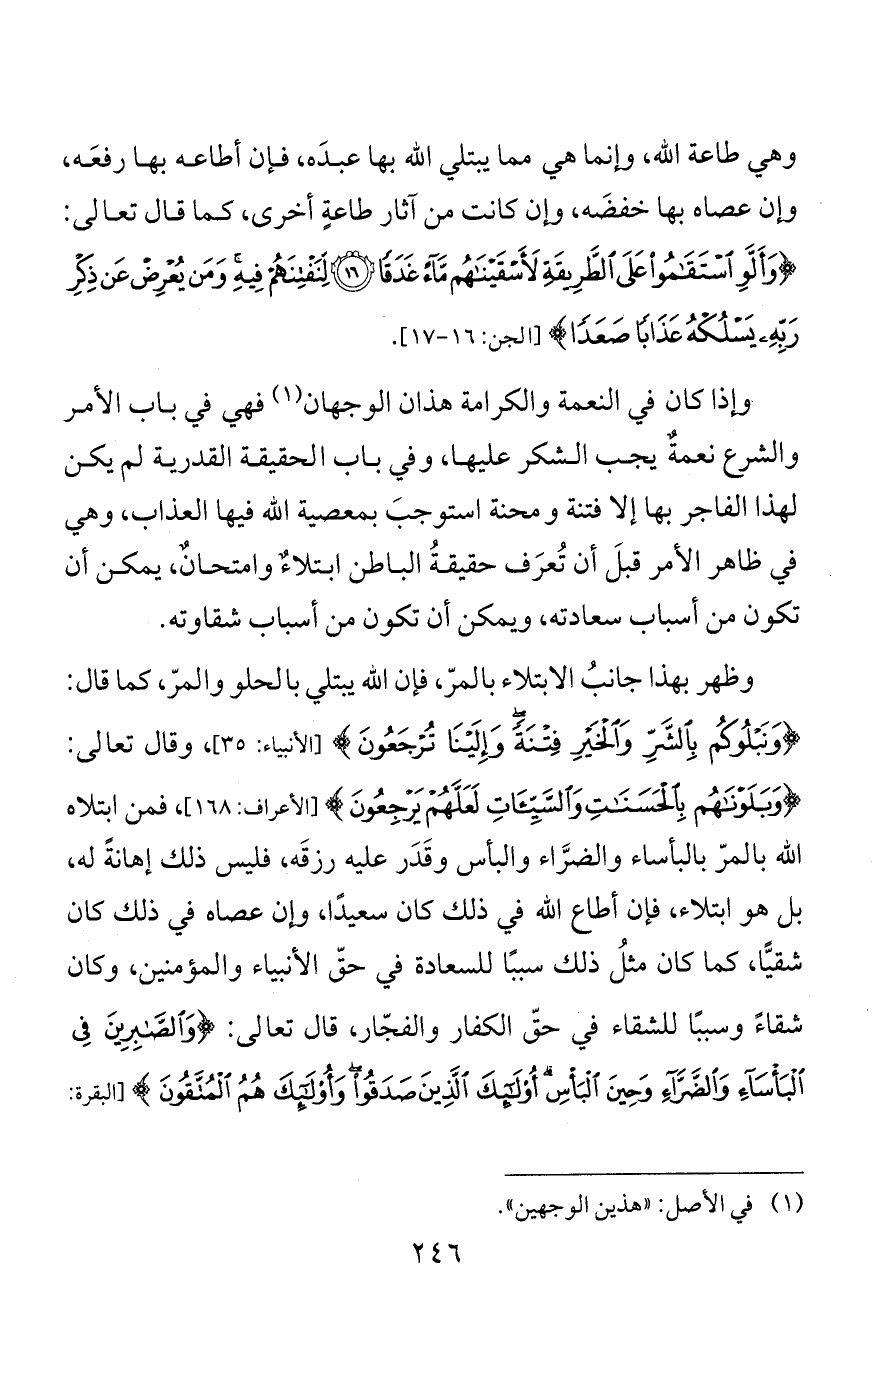 وهي طاعة الله، وإنما هي مما يبتلي الله بها عبدَه، فإن أطاعه بها رفعَه،
وإن عصاه بها خفضَه، وإن كانت من آثار طاعةٍ أخرى، كما قال تعالى:
﴿وَأَلَّوِ ٱسْتَقَٰمُوا۟ عَلَى ٱلطَّرِيقَةِ لَأَسْقَيْنَٰهُم مَّآءً غَدَقًا ١٦ لِنَفْتِنَهُمْ فِيهِ ۚ وَمَن يُعْرِضْ عَن ذِكْرِ
رَبِّهِۦ يَسْلُكْهُ عَذَابًا صَعَدًا﴾ [الجن: ١٦-١٧].
وإذا كان في النعمة والكرامة هذان الوجهان(١) فهي في باب الأمر
والشرع نعمةٌ يجب الشكر عليها، وفي باب الحقيقة القدرية لم يكن
لهذا الفاجر بها إلا فتنة ومحنة استوجبَ بمعصية الله فيها العذاب، وهي
في ظاهر الأمر قبلَ أن تُعرَف حقيقةُ الباطن ابتلاءٌ وامتحانٌ، يمكن أن
تكون من أسباب سعادته، ويمكن أن تكون من أسباب شقاوته.
وظهر بهذا جانبُ الابتلاء بالمرّ، فإن الله يبتلي بالحلو والمرّ، كما قال:
﴿وَنَبْلُوكُم بِٱلشَّرِّ وَٱلْخَيْرِ فِتْنَةً ۖ وَإِلَيْنَا تُرْجَعُونَ﴾ [الأنبياء: ٣٥]، وقال تعالى:
﴿وَبَلَوْنَٰهُم بِٱلْحَسَنَٰتِ وَٱلسَّيِّـَٔاتِ لَعَلَّهُمْ يَرْجِعُونَ﴾ [الأعراف: ١٦٨]، فمن ابتلاه
الله بالمرّ بالبأساء والضرَّاء والبأس وقَدَر عليه رزقَه، فليس ذلك إهانةً له،
بل هو ابتلاء، فإن أطاع الله في ذلك كان سعيدًا، وإن عصاه في ذلك كان
شقيًّا، كما كان مثلُ ذلك سببًا للسعادة في حقّ الأنبياء والمؤمنين، وكان
شقاءً وسببًا للشقاء في حقّ الكفار والفجّار، قال تعالى: ﴿وَٱلصَّٰبِرِينَ فِى
ٱلْبَأْسَآءِ وَٱلضَّرَّآءِ وَحِينَ ٱلْبَأْسِ ۗ أُو۟لَٰٓئِكَ ٱلَّذِينَ صَدَقُوا۟ ۖ وَأُو۟لَٰٓئِكَ هُمُ ٱلْمُتَّقُونَ﴾ [البقرة:
(١) في الأصل: «هذين الوجهين».
٢٤٦